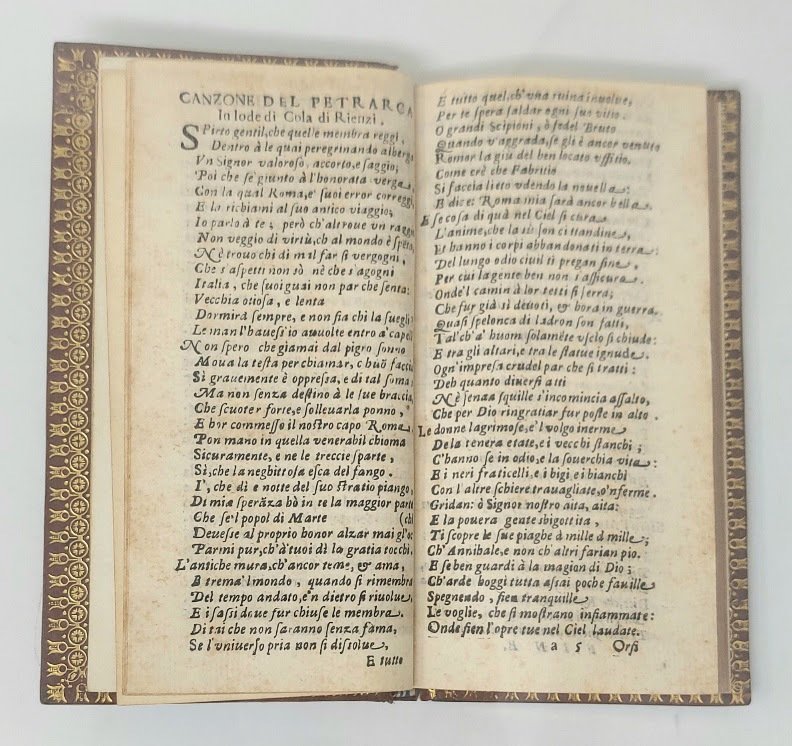 CANZONE DEL PETRARCA
In lode di Cola di Rienzi.
SPirto gentil, che quelle membra reggi,
Dentro à le quai peregrinando alberga
Vn Signor valoroso, accorto, e saggio;
Poi che sè giunto à l'honorata verga,
Con la qual Roma, e' suoi error correggi,
E la richiami al suo antico viaggio;
Io parlo à te; però ch'altroue vn raggio
Non veggio di virtù, ch al mondo è spēta,
Nè trouo chi di mal far si vergogni,
Che s'aspetti non sò nè che s'agogni
Italia, che suoi guai non par che senta:
Vecchia otiosa, e lenta
Dormirà sempre, e non fia chi la suegli
Le man l'hauess'io auuolte entro a'capell
Non spero che giamai dal pigro sonno
Moua la testa per chiamar, c huō faccia
Sì grauemente è oppressa, e di tal soma;
Ma non senza destino à le sue braccia,
Che scuoter forte, e solleuarla ponno,
E hor commesso il nostro capo Roma,
Pon mano in quella venerabil chioma
Sicuramente, e ne le treccie sparte,
Sì, che la neghittosa esca del fango.
I', che dì e notte del suo stratio piango,
Di mia sperāza hò in te la maggior parte
Che se'l popol di Marte (chi
Deuesse al proprio honor alzar mai gl'oc
Parmi pur, ch'à tuoi dì la gratia tocchi.
L'antiche mura, ch'ancor teme, & ama,
E trema'l mondo, quando si rimembra
Del tempo andato, e'n dietro si riuolue,
E i sassi doue fur chiuse le membra
Di tai che non saranno senza fama,
Se l'vniuerso pria non si dissolue,
E tutto
E tutto quel, ch'vna ruina inuolue,
Per te spera saldar ogni suo vitio.
O grandi Scipioni, ò fedel Bruto
Quando v'aggrada, se gli è ancor venuto
Romor la giù del ben locato vffitio.
Come crè che Fabritio
Si faccia lieto vdendo la nouella:
E dice: Roma mia sarà ancor bella.
E se cosa di quà nel Ciel si cura
L'anime, che la sù son cittadine,
Et hanno i corpi abbandonati in terra:
Del lungo odio ciuil ti pregan fine,
Per cui la gente ben non s'assicura.
Onde'l camin à lor tetti si serra;
Che fur già sì deuoti, & hora in guerra.
Quasi spelonca di ladron son fatti,
Tal'ch'a' buon solamēte vscio si chiude:
E tra gli altari, e tra le statue ignude
Ogn'impresa crudel par che si tratti:
Deh quanto diuersi atti
Nè senza squille s'incomincia assalto,
Che per Dio ringratiar fur poste in alto.
Le donne lagrimose, e'l volgo inerme
De la tenera etate, e i vecchi stanchi;
C'hanno se in odio, e la souerchia vita:
E i neri fraticelli, e i bigi e i bianchi
Con l'altre schiere trauagliate, e'nferme.
Gridan: ò Signor nostro aita, aita:
E la pouera gente sbigottita,
Ti scopre le sue piaghe à mille à mille;
Ch'Annibale, e non ch'altri farian pio.
E se ben guardi à la magion di Dio;
Ch'arde hoggi tutta assai poche fauille
Spegnendo, fien tranquille
Le voglie, che si mostrano infiammate:
Onde fien l'opre tue nel Ciel laudate.
a 5 Orsi